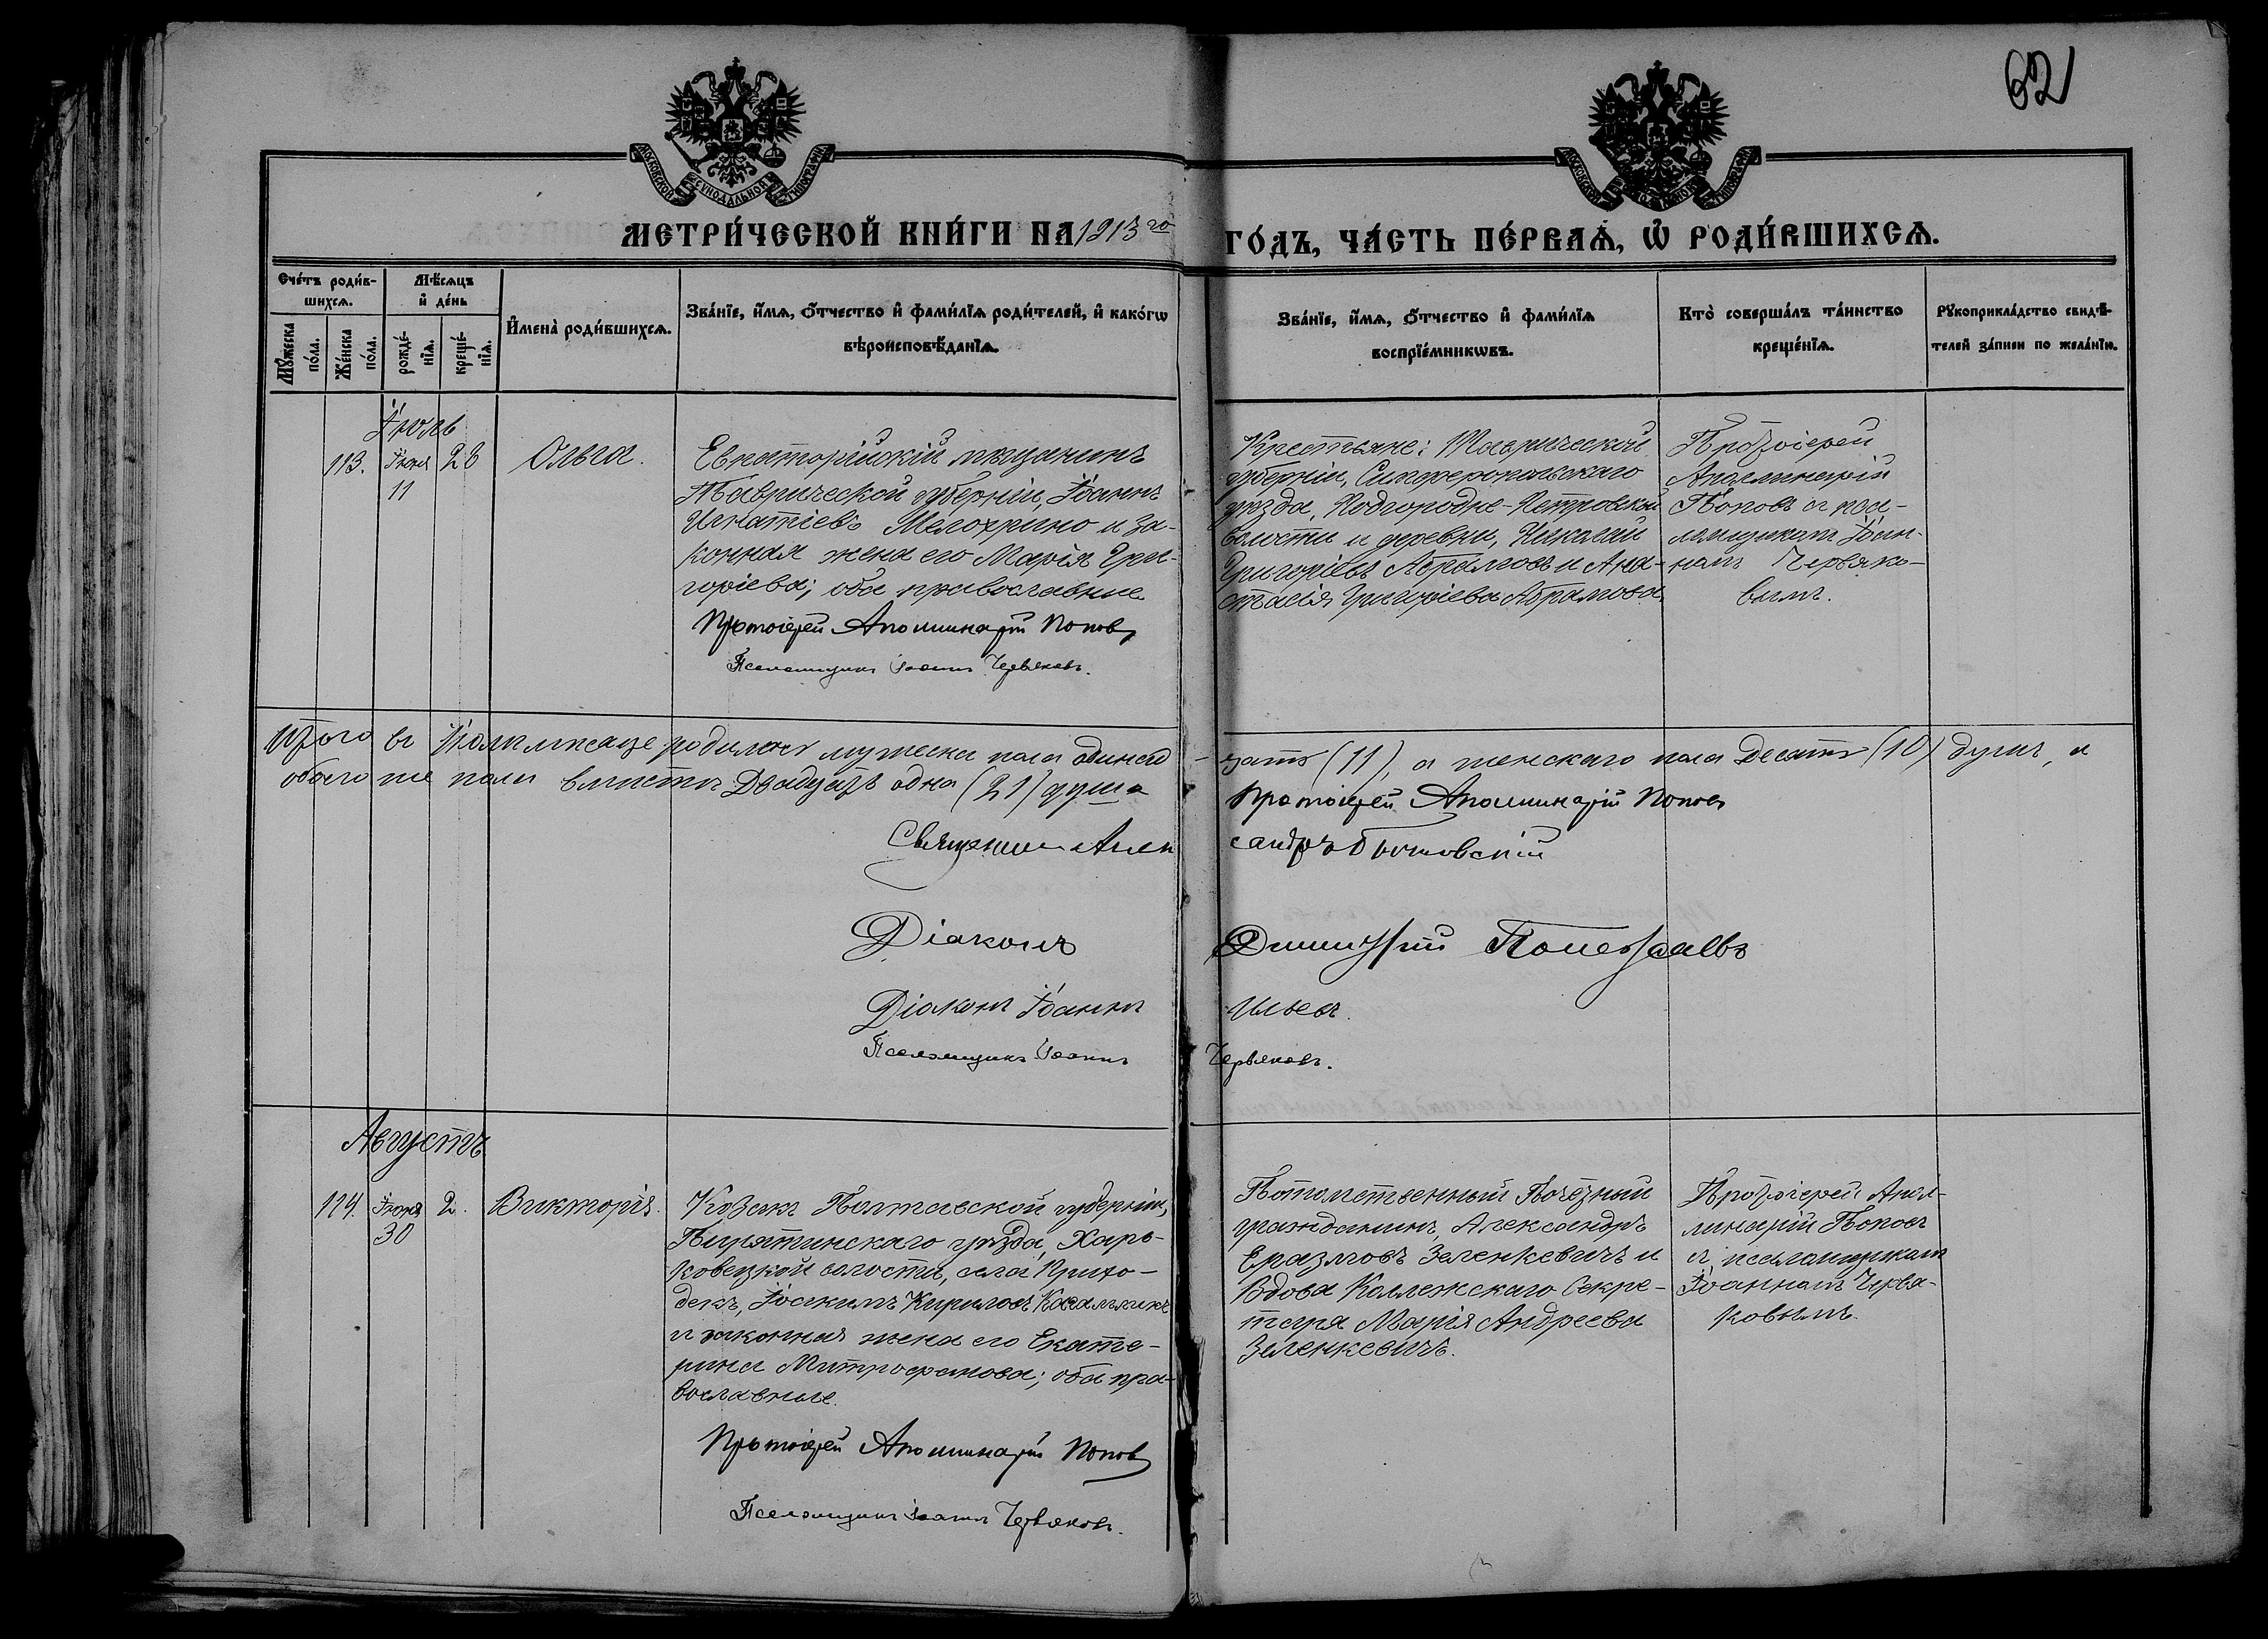 62
МОСКОВСКОЙ СУНОДАЛЬНОЙ ТИПОГРАФІИ
МОСКОВСКОЙ СУНОДАЛЬНОЙ ТИПОГРАФІИ
МЕТРИ́ЧЕСКОЙ КНИ́ГИ НА 1913го ГО́ДЪ, ЧА́СТЬ ПЕ́РВАѦ, Ѡ҆ РОДИ́ВШИХСѦ.
Сче́тъ роди́в-
шихсѧ.
Мꙋ́жеска
по́ла.
Же́нска
по́ла.
Мѣ́сѧцъ
и҆ де́нь
рожде́-
нїѧ.
креще́-
нїѧ.
И҆мена̀ роди́вшихсѧ.
Зва́нїе, и҆́мѧ, ѻ҆́тчество и҆ фами́лїѧ роди́телей, и҆ како́гѡ
вѣроисповѣ́данїѧ.
Зва́нїе, и҆́мѧ, ѻ҆́тчество и҆ фами́лїѧ
воспрїе́мникѡвъ.
Кто̀ соверша́лъ та́инство
креще́нїѧ.
Рꙋкоприкла́дство свидѣ́-
телей за́писи по жела́нїю.
Іюль
113.
Іюня
11
28
Ольга.
Евпаторійскій мѣщанинъ
Таврической губерніи, Іоаннъ
Игнатіевъ Мелохрино и за-
конная жена его Марія Гри-
горіева; оба православные
Протоіерей Аполлинарій Поповъ
Псаломщикъ Іоаннъ Червяковъ.
Крестьяне: Таврической
губерніи, Симферопольскаго
уѣзда, Подгородне-Петровской
волости и деревни, Николай
Григоріевъ Абрамовъ и Ана-
стасія Григоріева Абрамова.
Протоіерей
Аполлинарій
Поповъ съ пса-
ломщикомъ Іоан-
номъ Червяко-
вымъ.
Итого въ Іюлѣ мѣсяцѣ родилось мужеска пола одинад-
цать (11), а женскаго пола десять (10) душъ, а
обоего же пола вмѣстѣ двадцать одна (21) душа
Протоіерей Аполлинарій Поповъ
Священникъ Александръ
Діаконъ Димитрій
Діаконъ Іоаннъ Ильевъ.
Псаломщикъ Іоаннъ Червяковъ.
Августъ
114.
Іюня
30
2.
Викторія.
Козакъ Полтавской губерніи,
Пирятинскаго уѣзда, Харь-
ковецкой волости, села Прихо-
декъ, Іоакимъ Кириловъ
и законная жена его Екате-
рина Митрофанова; оба пра-
вославные.
Протоіерей Аполлинарій Поповъ
Псаломщикъ Іоаннъ Червяковъ.
Потомственный Почетный
гражданинъ, Александръ
Еразмовъ Зеленкевичъ и
Вдова Коллежскаго Секре-
таря Марія Андреева
Зеленкевичъ.
Протоіерей Апол-
линарій Поповъ
съ псаломщикомъ
Іоанномъ Червя-
ковымъ.